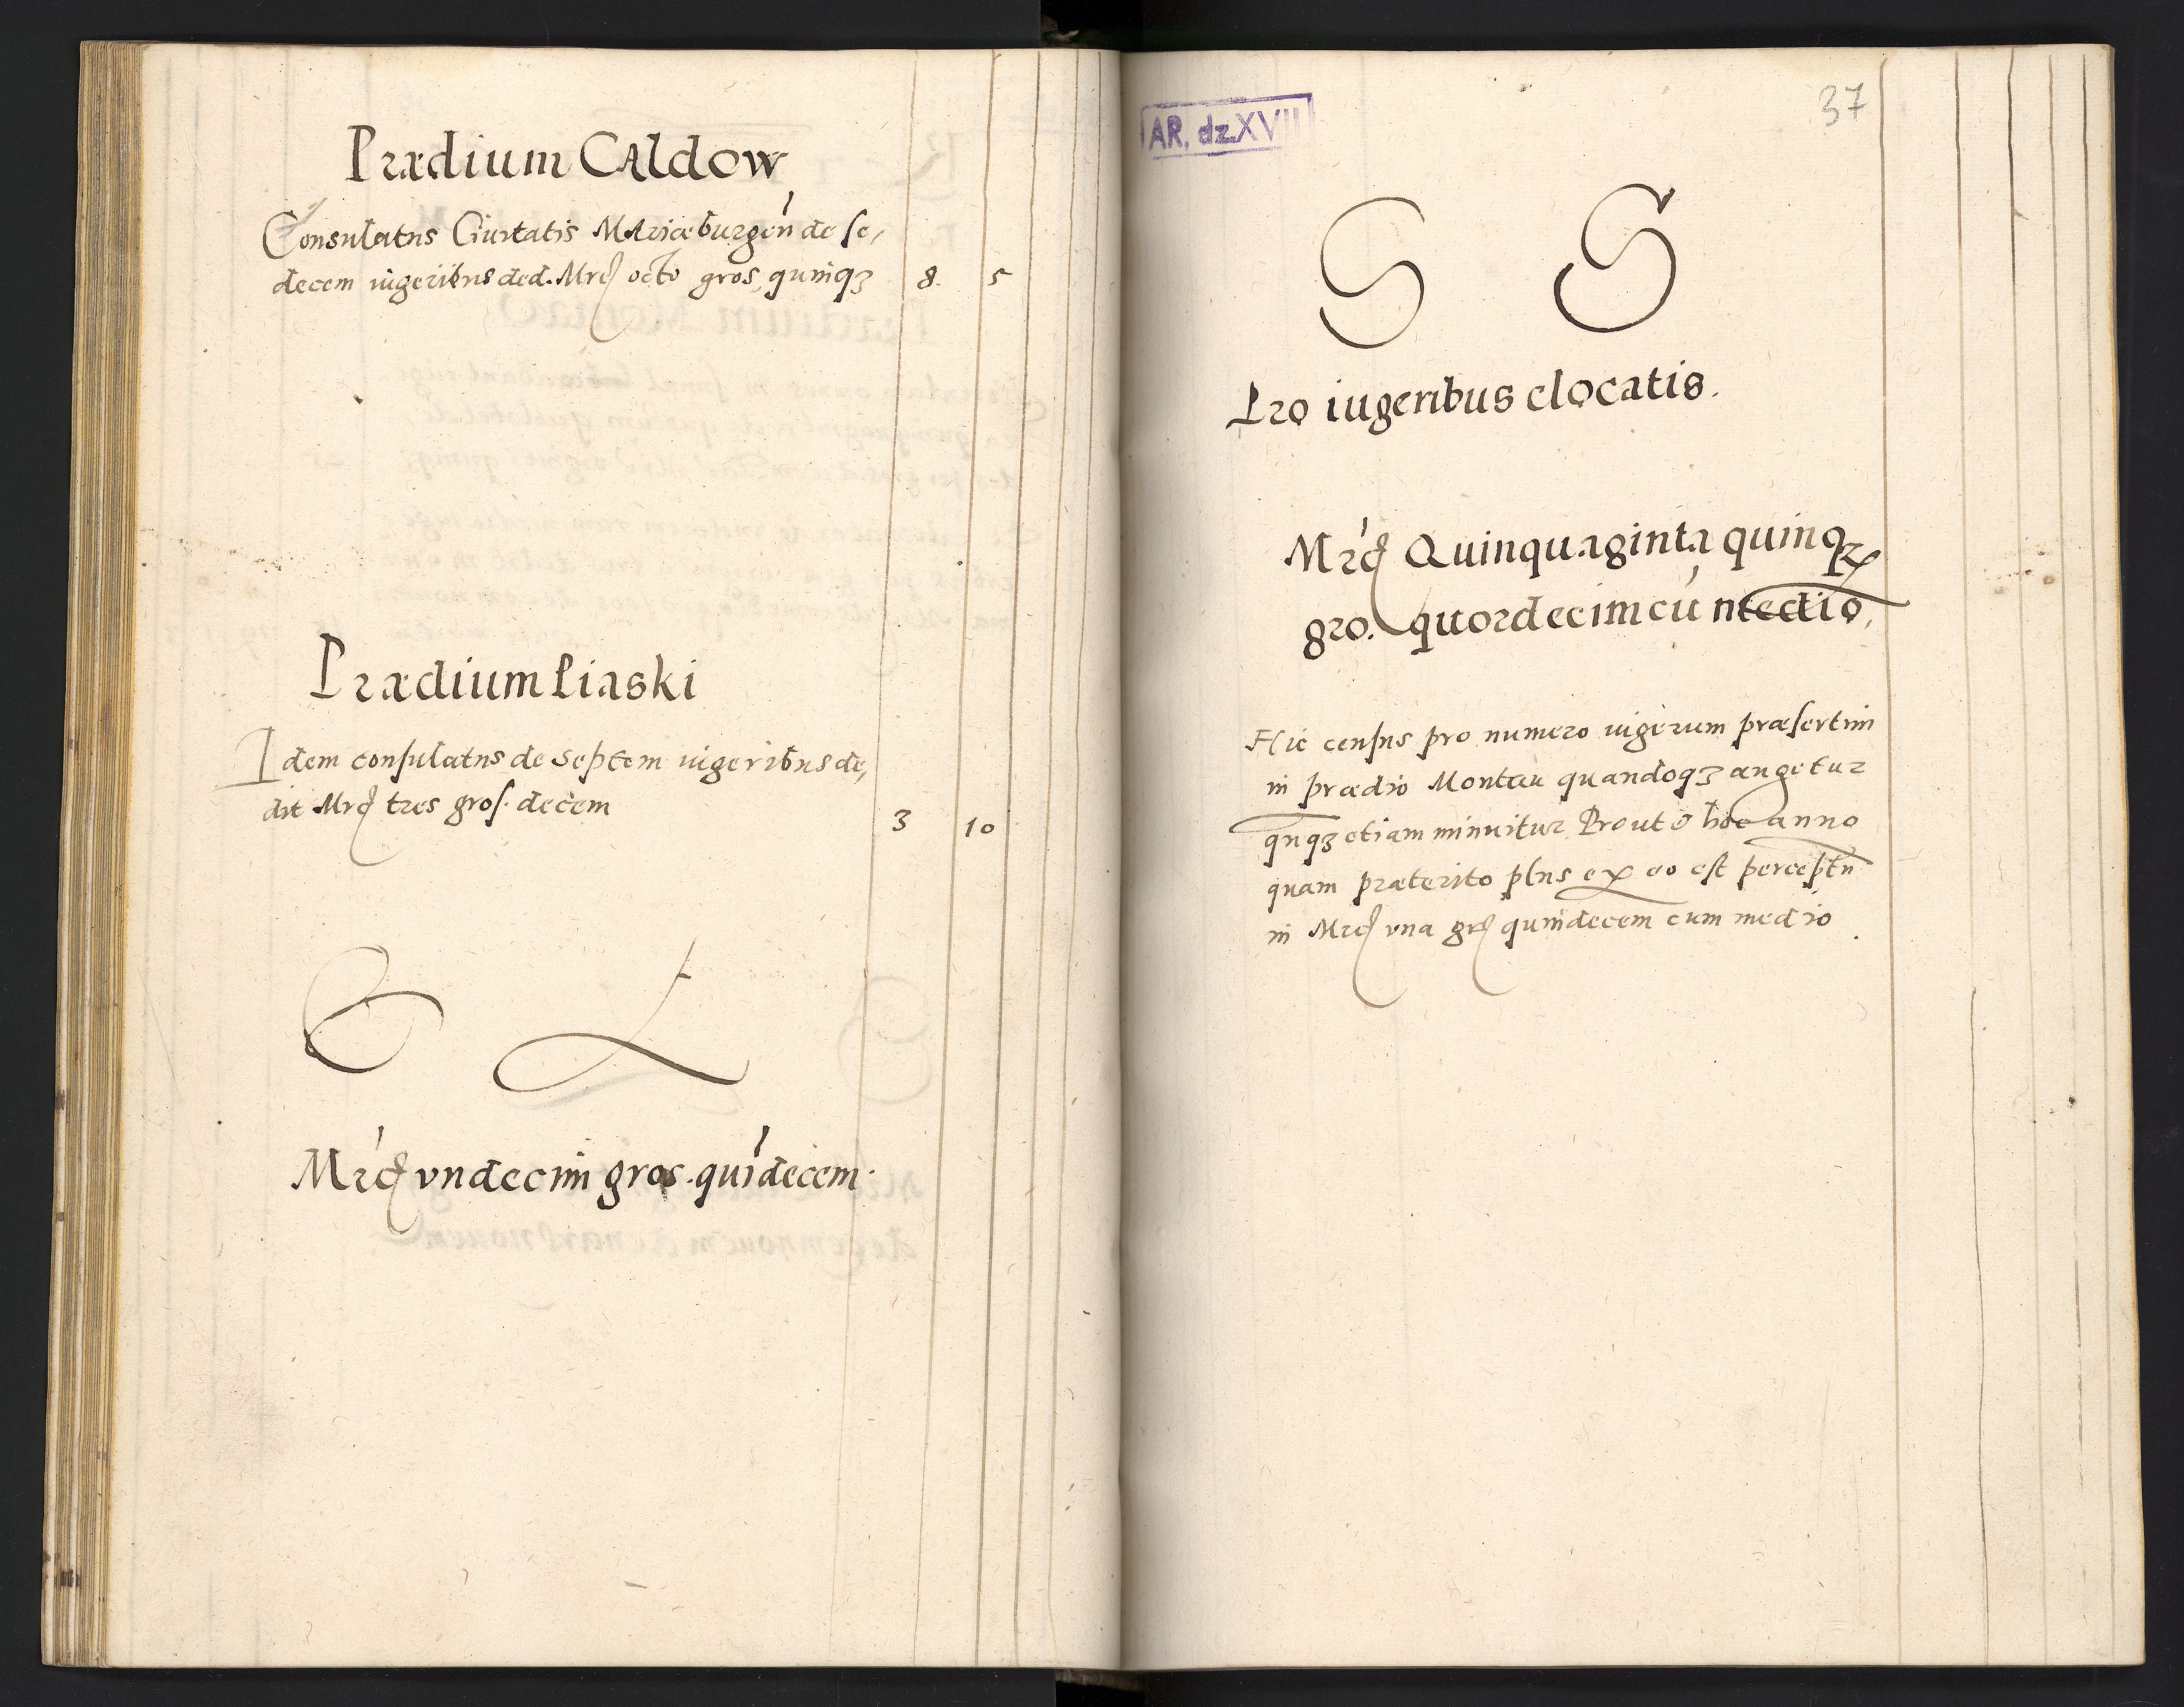 Prædium CAldow
Consulatus Ciuitatis Mariæburgeń de se,
decem iugeribus ded. Mrc̃ octo gros, quinqꝫ 8. 5
Prædium Piaski
Idem consulatus de septem iugeribus de,
dit Mrc̃ tres gros. decem 3 10
Mrc̃ vndecim gros. quīdecem.
AR, dz.XVII
37
S S
Pro iugeribus elocatis.
Mrc̃ Quinquaginta quinqꝫ
gro. quordecim cū medio,
Hic census pro numero iugerum præsertim
in prædio Montau quandoqꝫ augetur
qnqꝫ etiam minuitur Prout hoc anno
quam præterito plus ex eo est perceptū
in Mrc̃ vna grc̃ quindecem cum medio.